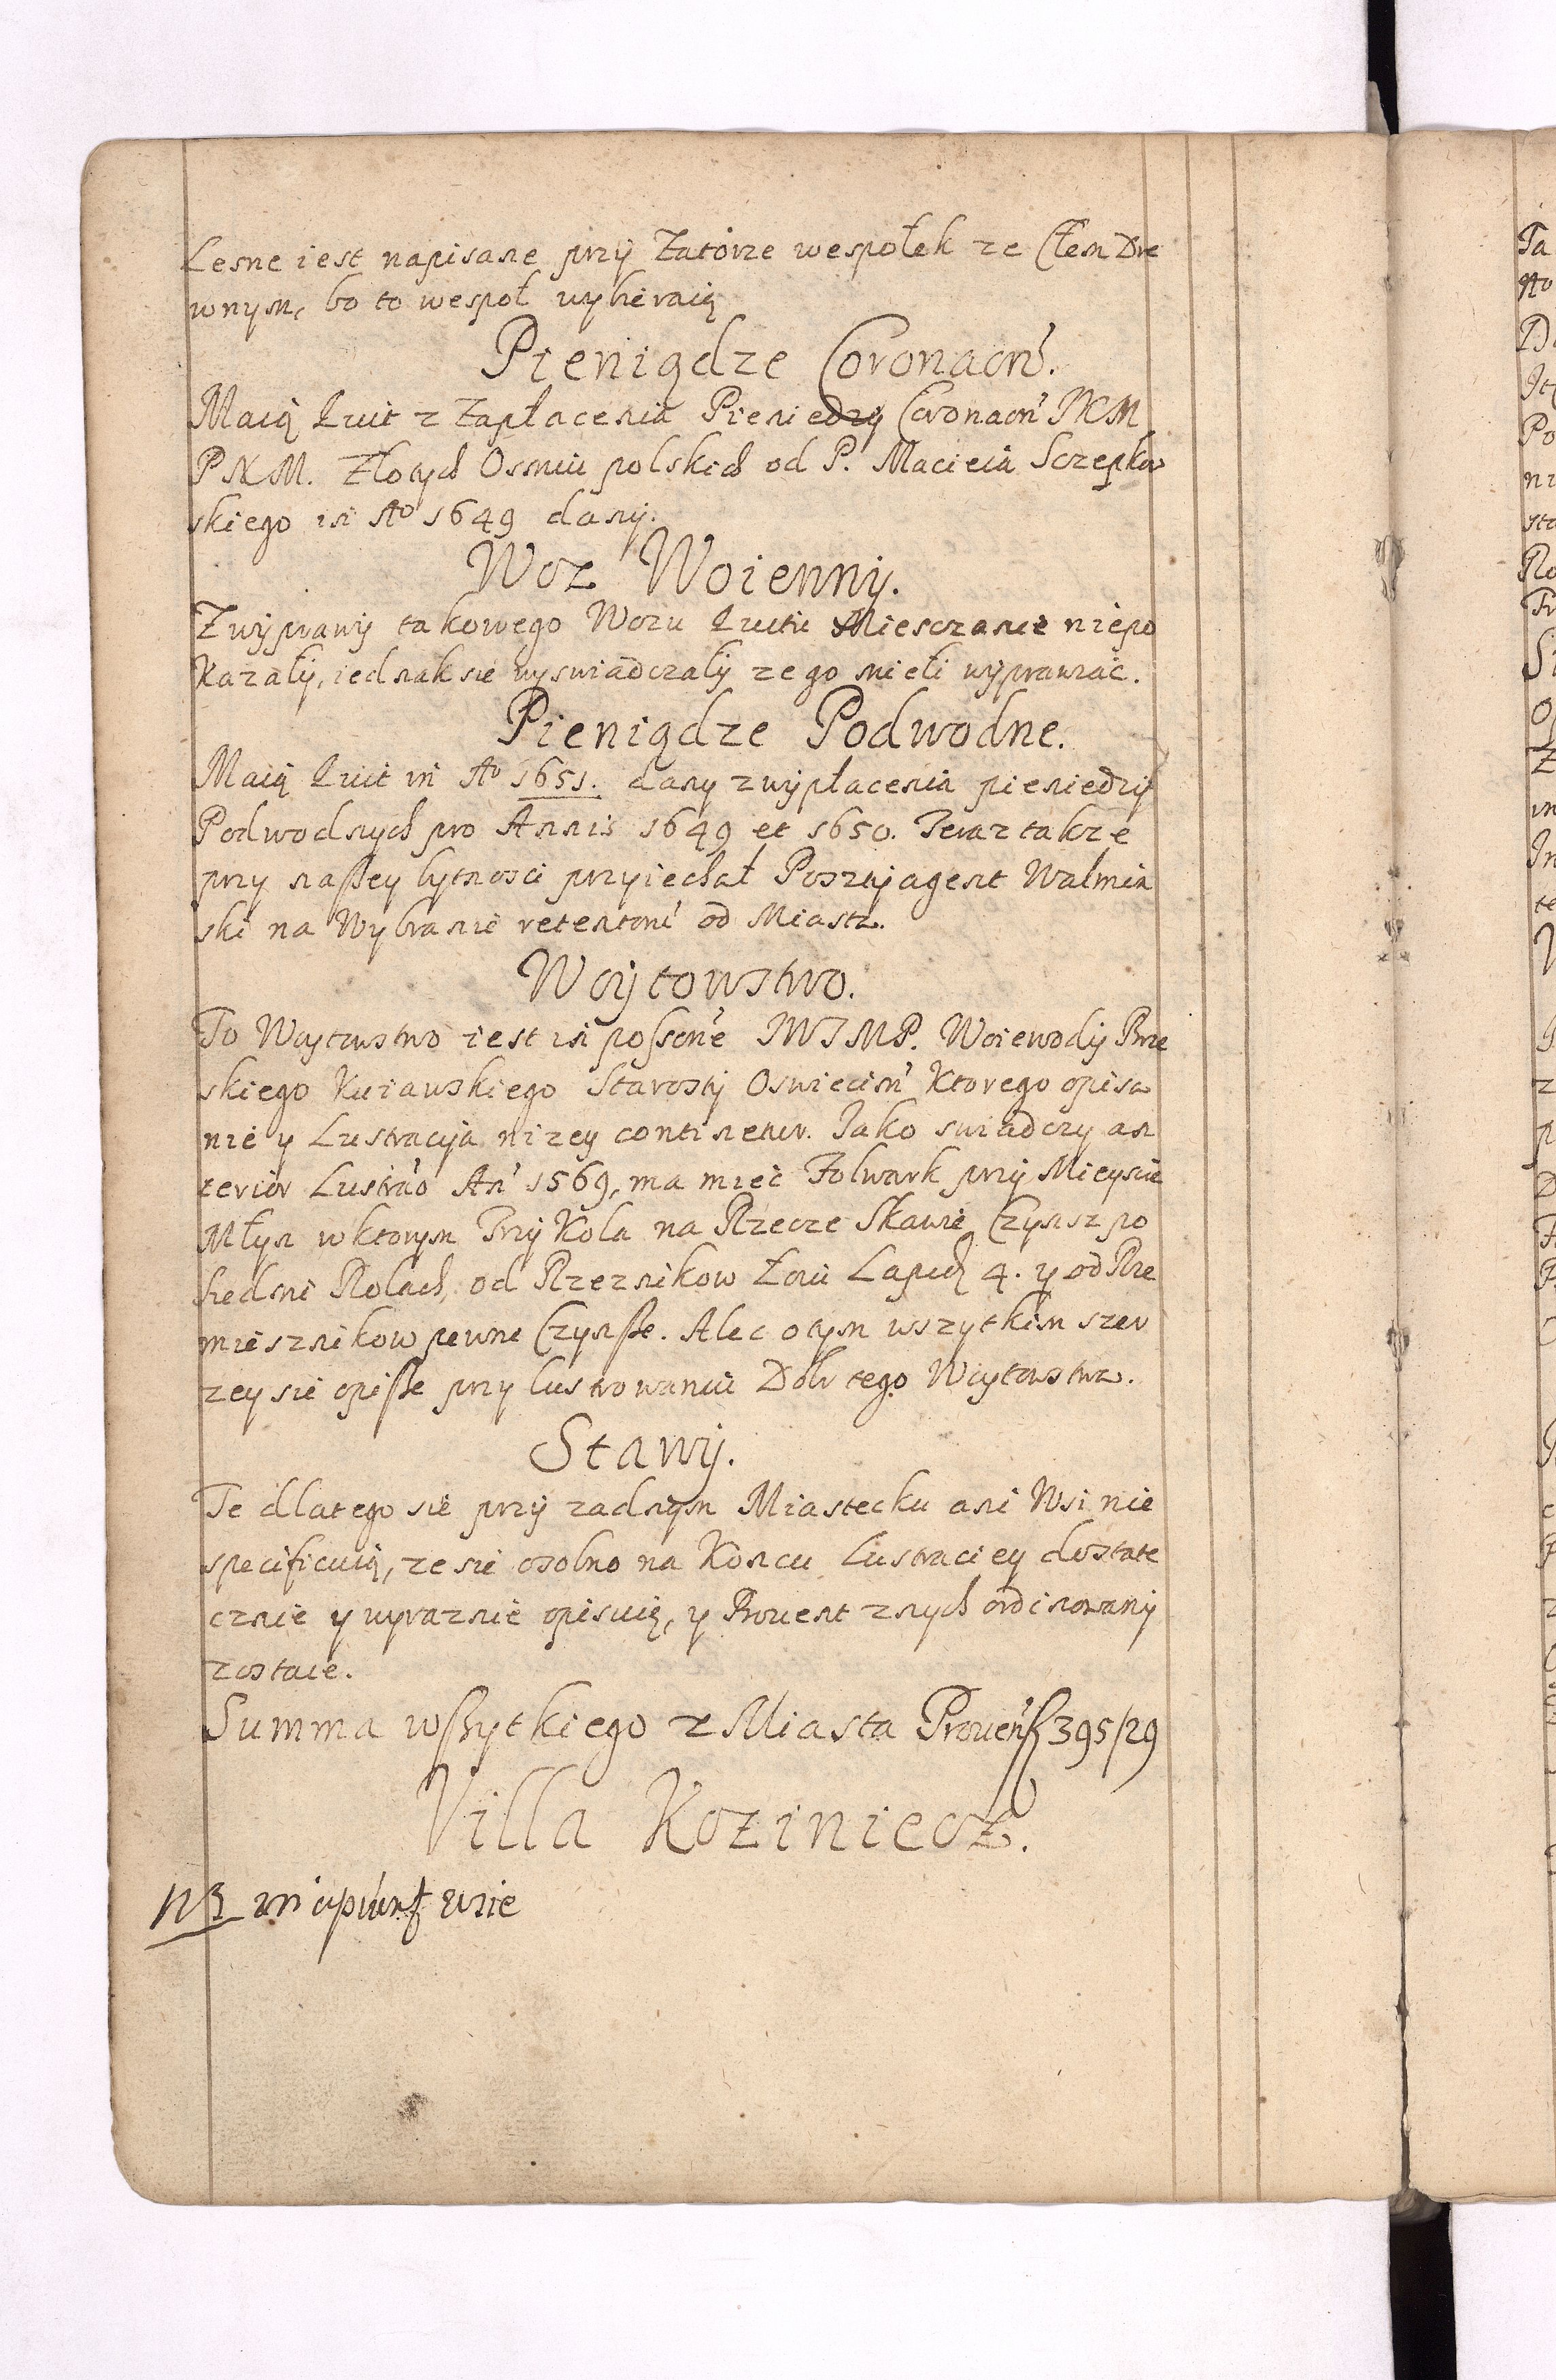 Lesne iest napisane przy Zatorze wespołek ze Cłem Drze
wnym, bo to wespoł wybieraią
Pieniądze Coronacń.
Maią kwit z Zapłacenia Pieniedzy Coronacń JKM
PNM. Złotych Osmiu polskich od P. Macieia Sczepkow
skiego in Ao 1649 dany.
Woz Woienny.
Z wyprawy takowego Wozu kwitu Miesczanie niepo
kazały, iednak sie wyswiadczały ze go mieli wyprawiac.
Pieniądze Podwodne.
Maią kwit in Ao 1651. dany z wypłacenia pieniedzy
Podwodnych pro Annis 1649 et 1650. Teraz takze
przy naßey bytnosci przyiechał Posztÿ agent Walmin
ski na Wybranie retentorń od Miasta.
Woytowstwo.
To Woytowstwo iest in possonė JWJMP. Woiewody Brze
skiego Kuiawskiego Starosty Oswiecim̃ Ktorego opisa
nie y Lustracyja nizey continetur. Jako swiadczy an
terior Lustrao Añ 1569, ma miec Folwark przy Mieyscie
Młyn w ktorym Trzy Kola na Rzecze Skawie Czynsz po
siedmi Rolach, od Rzeznikow Łoiu Lapich 4. y od Rze
miesznikow pewne Czynsße. Alec o tym wszytkim szer
zey sie opiße przy lustrowaniu Dobr tego Woytowstwa.
Stawy.
Te dlatego sie przy zadnym Miastecku ani Wsi nie
specificuią, ze sie osobno na Koncu Lustraciey dostate
cznie y wyraznie opisuią, y Prouent z nych ordinowany
zostaie.
Summa wßytkiego z Miasta Prouenť f 395/29
Villa Koziniecz.
NB